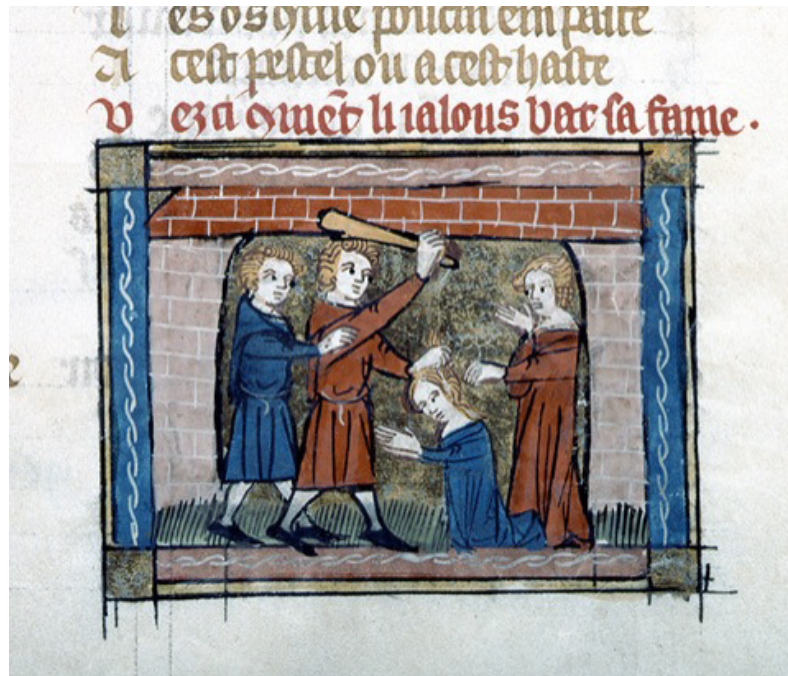 es os ꝯme poucin em paste
A cest pestel ou a cest haste
V ez ci ꝯmēt li ialous bat sa fame .